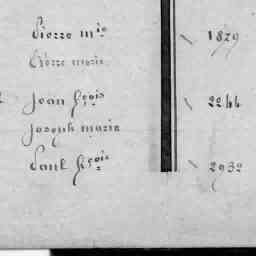 Pierre mie 1829
Pierre marie
Jean fçois 2244
Joseph marie
Paul fçois 2932